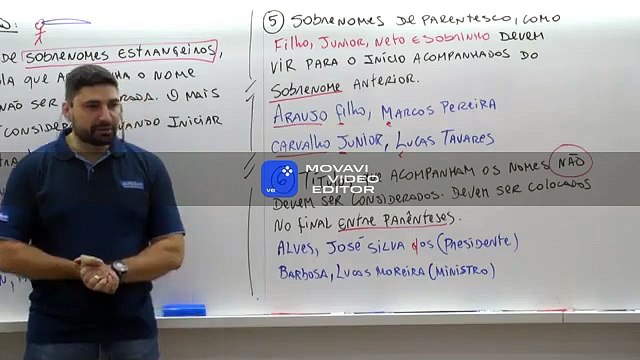 DE SOBRENOMES ESTRANGEIROS,
O NOME
O MAIS
CONSIDER
QUANDO INICIAR
5 SOBRENOMES DE PARENTESCO, COMO
FILHO, JUNIOR, NETO E SOBRINHO DEVEM
VIR PARA O INÍCIO ACOMPANHADOS DO
SOBRENOME ANTERIOR.
ARAUJO FILHO, MARCOS PEREIRA
CARVALHO JUNIOR, LUCAS TAVARES
6 ACOMPANHAM OS NOMES NÃO
DEVEM SER CONSIDERADOS. DEVEM SER COLOCADOS
NO FINAL ENTRE PARÊNTESES.
ALVES, JOSÉ SILVA dOS (PRESIDENTE)
BARBOSA, LUCAS MOREIRA (MINISTRO)
MOVAVI
VIDEO
EDITOR